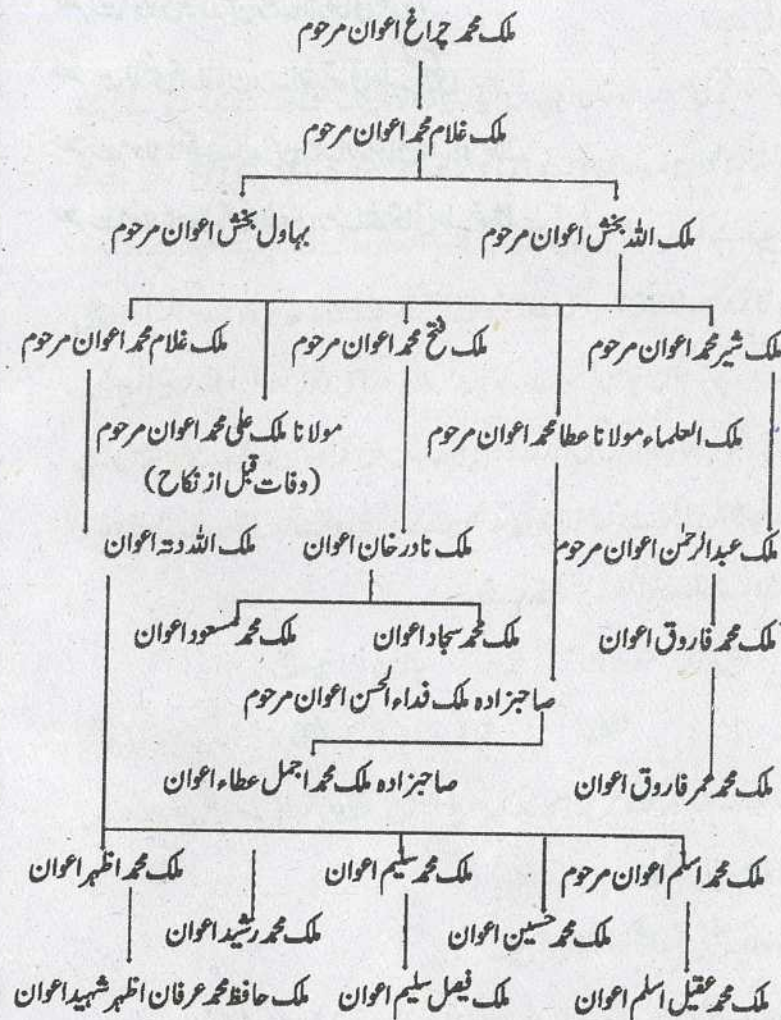 ملک محمد چراغ اعوان مرحوم
ملک غلام محمد اعوان مرحوم
ملک اللہ بخش اعوان مرحوم بہاول بخش اعوان مرحوم
ملک شیر محمد اعوان مرحوم ملک فتح محمد اعوان مرحوم ملک غلام محمد اعوان مرحوم
ملک العلماء مولانا عطا محمد اعوان مرحوم مولانا ملک علی محمد اعوان مرحوم
(وفات قبل از نکاح)
ملک عبدالرحمٰن اعوان مرحوم ملک نادر خان اعوان ملک اللہ دتہ اعوان
ملک محمد فاروق اعوان ملک محمد سجاد اعوان ملک محمد مسعود اعوان
صاحبزادہ ملک فداء الحسن اعوان مرحوم
ملک محمد عمر فاروق اعوان صاحبزادہ ملک محمد اجمل عطاء اعوان
ملک محمد اسلم اعوان مرحوم ملک محمد سلیم اعوان ملک محمد اظہر اعوان
ملک محمد حسین اعوان ملک محمد رشید اعوان
ملک محمد عقیل اسلم اعوان ملک فیصل سلیم اعوان ملک حافظ محمد عرفان اظہر شہید اعوان